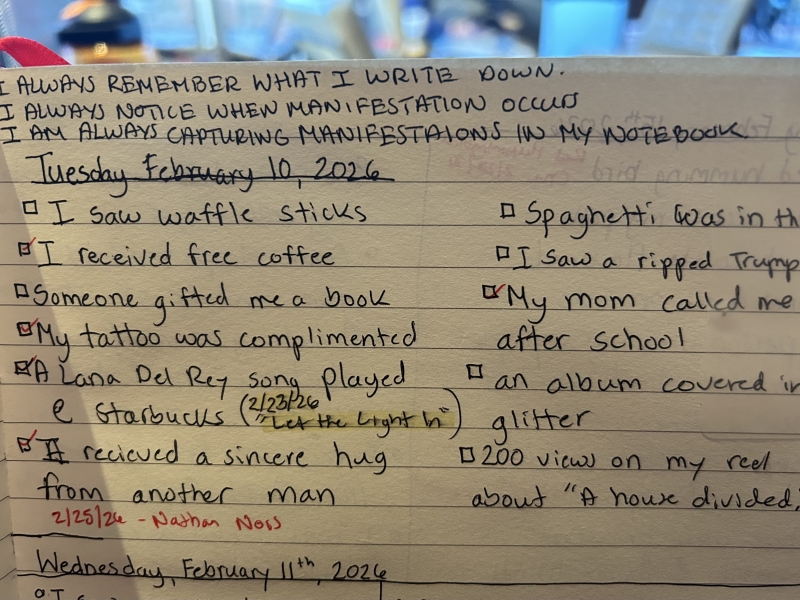 I ALWAYS REMEMBER WHAT I WRITE DOWN.
I ALWAYS NOTICE WHEN MANIFESTATION OCCURS
I AM ALWAYS CAPTURING MANIFESTAIONS IN MY NOTEBOOK.
Tuesday February 10, 2026
I saw waffle sticks
I received free coffee
Someone gifted me a book
My tattoo was complimented
A Lana Del Rey song played
@ Starbucks (2/23/26
"Let the Light In")
I recieved a sincere hug
from another man
2/25/26 - Nathan Ness
Spaghetti was in th
I saw a ripped Trump
My mom called me
after school
an album covered in
glitter
200 views on my reel
about "A house divided,"
Wednesday, February 11th, 2026